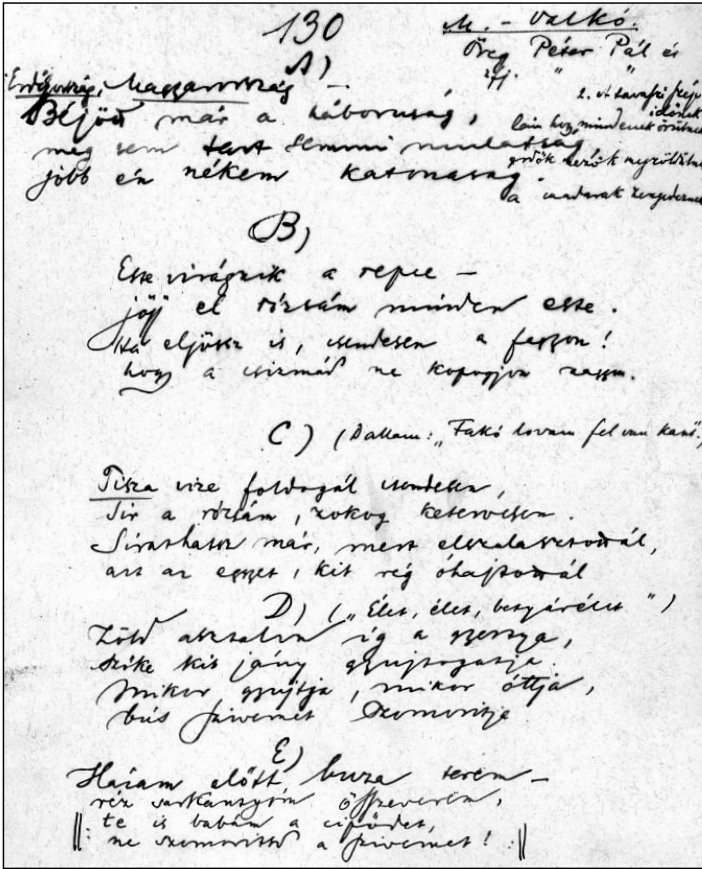 130
M. - Valkó.
Öreg Péter Pál és
ifj. " "
A)
Erdőország, Magyarország –
Béjött már a háboruság,
még sem tart semmi mulatság,
jobb én nékem katonaság.
2. A tavaszi szép
időnek
mindenek örülnek
erdők mezők megzöldülnek
a madarak zengedeznek
B)
Este virágzik a repce –
jöjj el rózsám minden este.
Ha eljössz is, csendesen
hogy a csizmád ne kopogjon
C) (Dallam: "Fakó lovam fel van
Tisza vize foldogál csendesen,
Sir a rózsám, zokog keservesen.
Sirathatsz már, mert elszalasztottál,
azt az egyet, kit rég óhajtottál
D) ("Élet, élet, betyárélet")
Zöld asztalon ég a gyertya,
szőke kis jány gyujtogatja.
Mikor gyujtja, mikor óttja,
bús szivemet szomoritja.
E)
Házam előtt buza terem –
réz sarkantyúm összeverem,
te is babám a cipődet,
ne szomoritsd a szivemet!